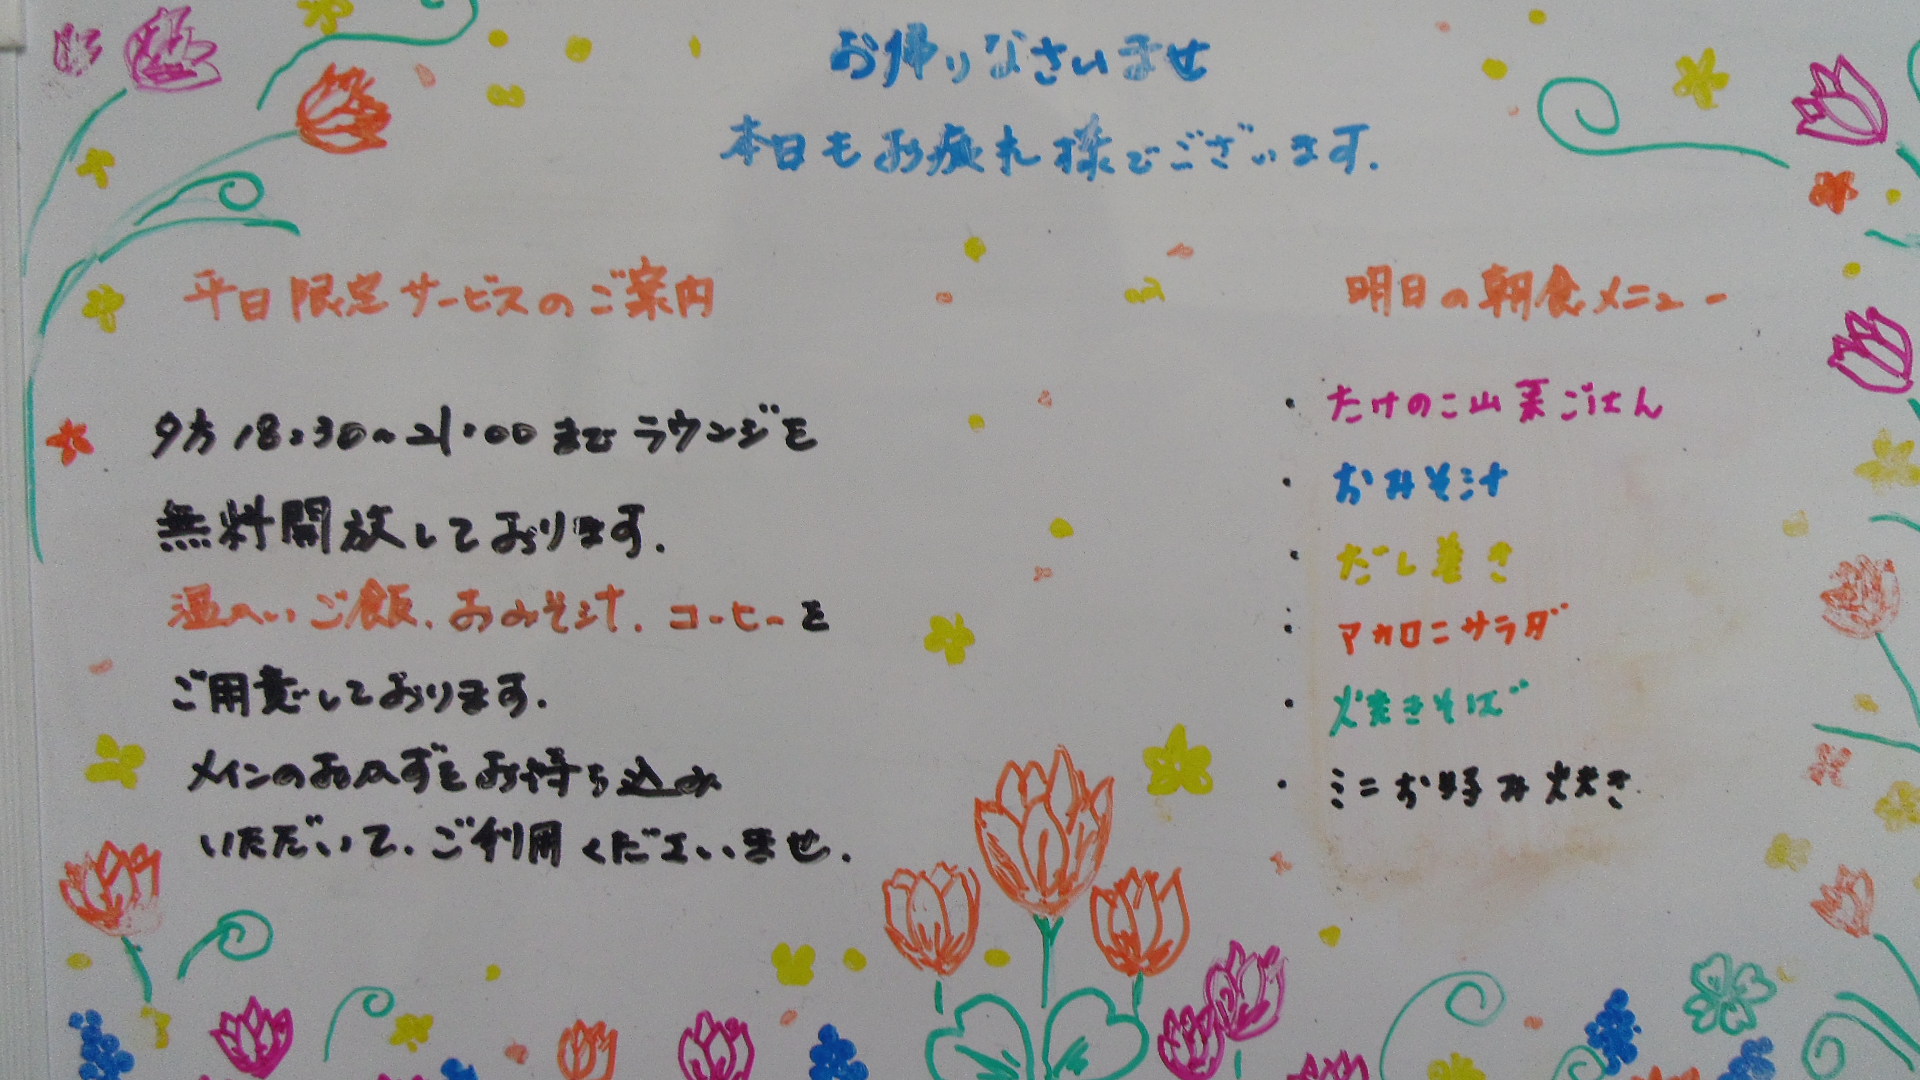 お帰りなさいませ
本日もお疲れ様でございます.
平日限定サービスのご案内
夕方18:30~21:00までラウンジを
無料開放しております.
温かいご飯.おみそ汁.コーヒーを
ご用意しております.
メインのおかずをお持ち込み
いただいて.ご利用くださいませ.
明日の朝食メニュー
・たけのこ山菜ごはん
・おみそ汁
・だし巻き
・マカロニサラダ
・焼きそば
・ミニお好み焼き